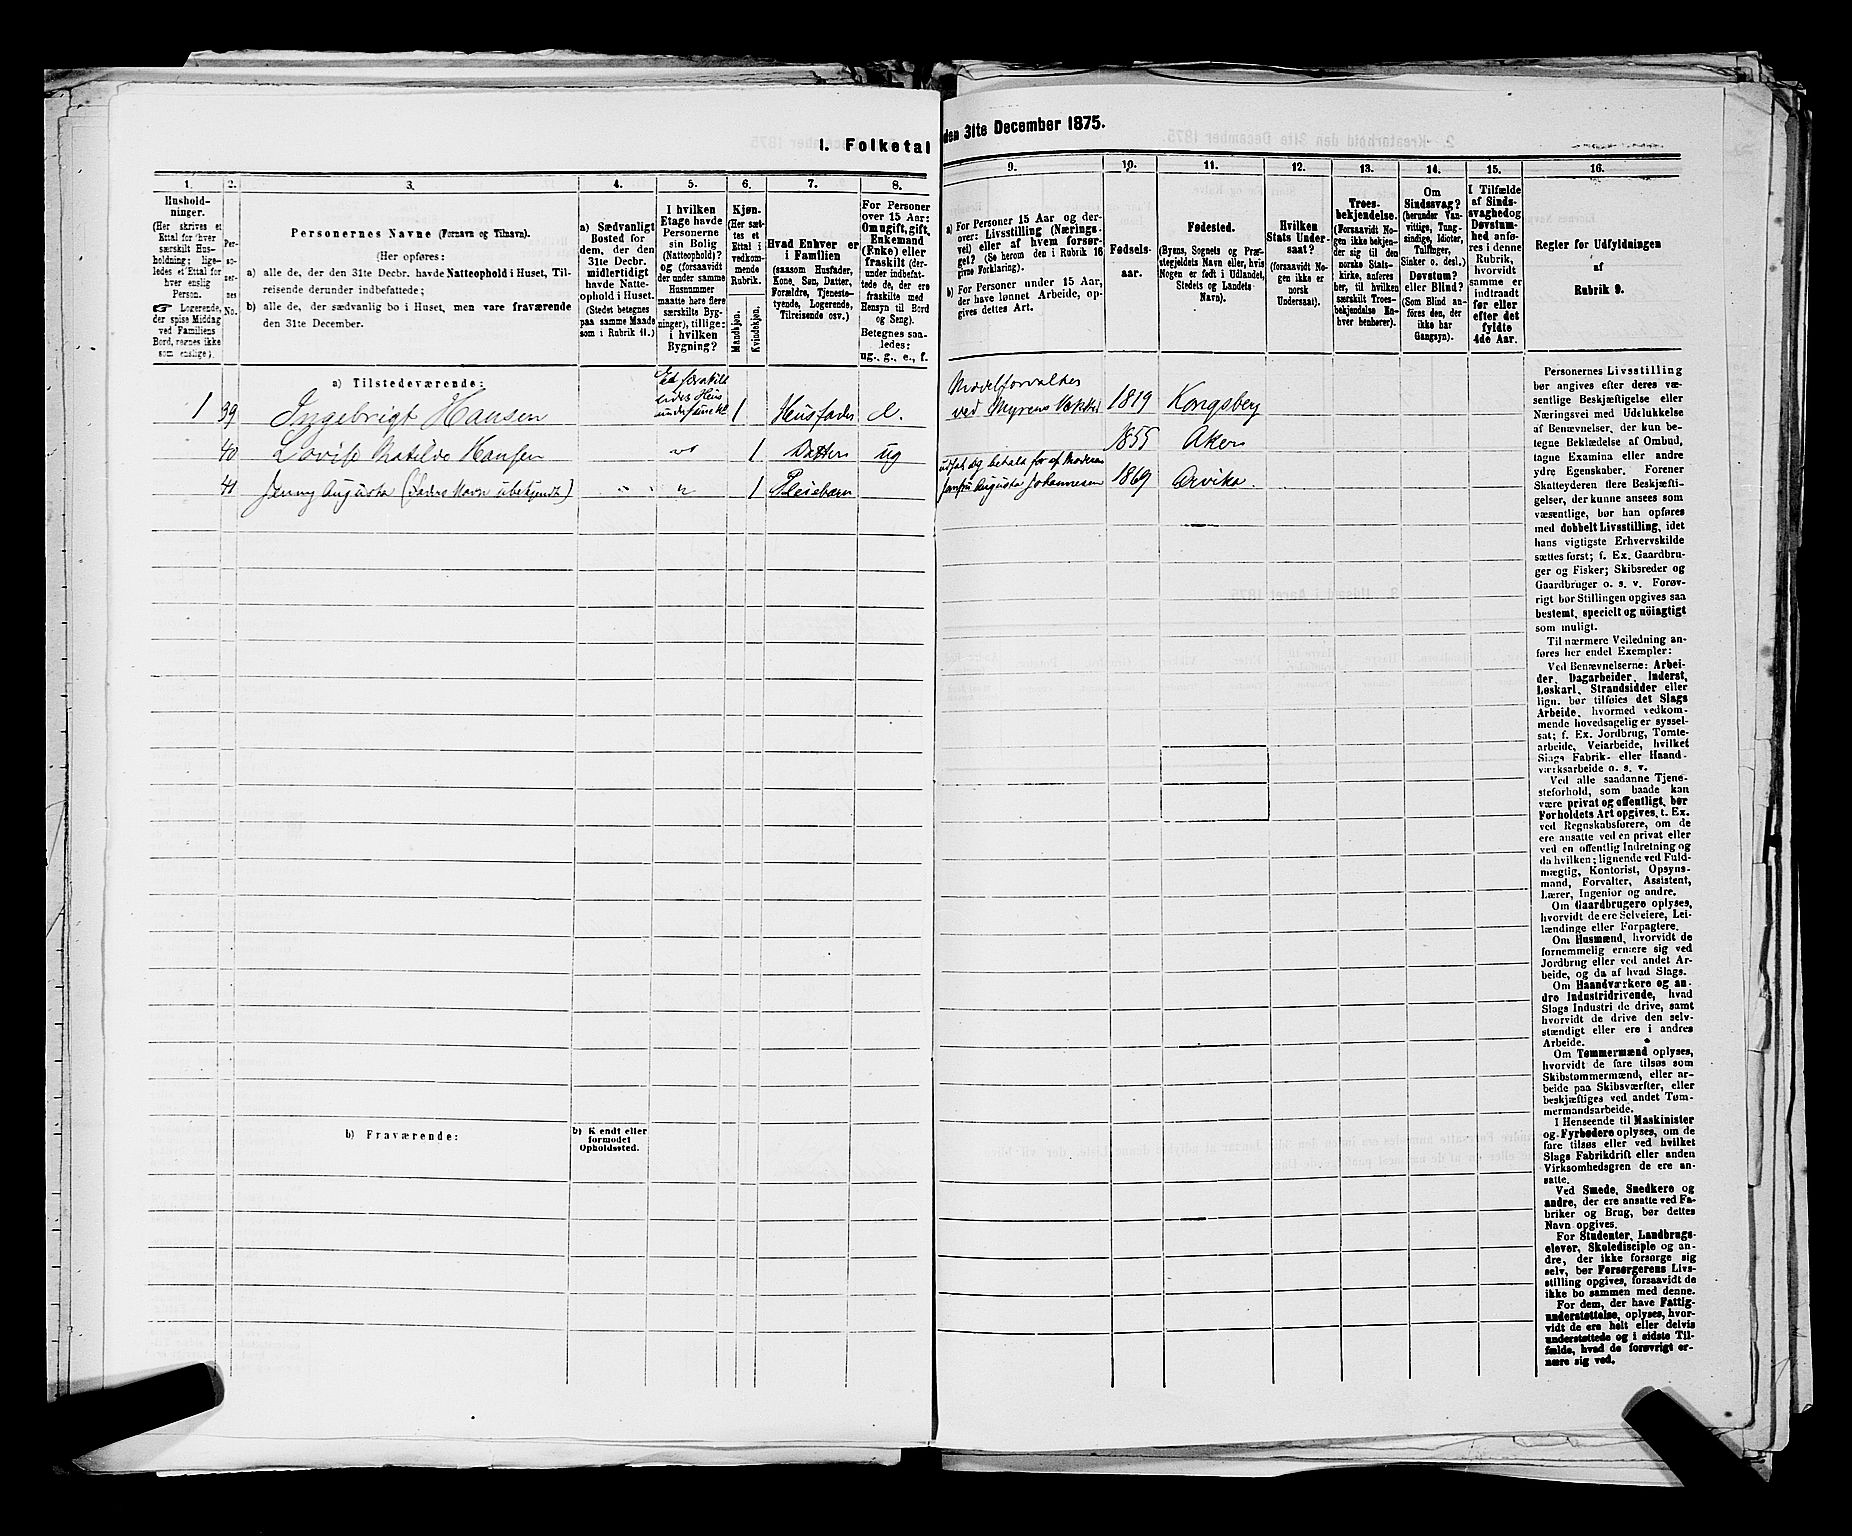 I. Folketal
den 31te December 1875.
1.
2.
3.
4.
5.
6.
7.
8.
Hushold-
ninger.
(Her skrives et
Ettal for hver
særskilt Hus-
holdning; lige-
ledes et Ettal for
hver enslig
Person.
Logerende,
der spise Middag
ved Familiens
Bord, regnes ikke
som enslige).
Per-
so-
ner-
nes
No.
Personernes Navne (Fornavn og Tilnavn).
(Her opføres:
a) alle de, der den 31te Decbr. havde Natteophold i Huset, Til-
reisende derunder indbefattede;
b) alle de, der sædvanlig bo i Huset, men vare fraværende
den 31te December.
a) Sædvanligt
Bosted for
dem, der den
31te Decbr.
midlertidigt
havde Natte-
ophold i Huset.
(Stedet betegnes
paa samme Maade
som i Rubrik 11.)
I hvilken
Etage havde
Personerne
sin Bolig
(Natteophold)?
og (forsaavidt
der under samme
Husnummer
maatte høre flere
særskilte Byg-
ninger), tillige:
i hvilken
Bygning?
Kjøn.
(Her sæt-
tes et
Ettal i
vedkom-
mende
Rubrik.
Mandkjøn.
Kvindekjøn.
Hvad Enhver er
i Familien
(saasom Husfader,
Kone, Søn, Datter,
Forældre, Tjeneste-
tyende, Logerende,
Tilreisende osv.)
For Personer
over 15 Aar:
Om ugift, gift,
Enkemand
(Enke) eller
fraskilt (der-
under indbefat-
tede de, der ere
fraskilte med
Hensyn til Bord
og Seng).
Betegnes saa-
ledes:
ug., g., e., f.
a) Tilstedeværende:
1 39 Ingebrigt Hansen 1 Husfader e.
40 Lovise Matilde Hansen 1 Datter ug
41 Jenny Augusta (Faders Navn ubekjendt) " 1 Pleiebarn
b) Fraværende:
b) Kjendt eller
formodet
Opholdssted.
9.
10.
11.
12.
13.
14.
15.
16.
a) For Personer 15 Aar og der-
over: Livsstilling (Nærings-
vei) eller af hvem forsør-
get? (Se herom den i Rubrik 16
givne Forklaring).
b) For Personer under 15 Aar,
der have lønnet Arbeide, op-
gives dettes Art.
Fødsels-
aar.
Fødested.
(Byens, Sognets og Præ-
stegjeldets Navn eller, hvis
Nogen er født i Udlandet,
Stedets og Landets
Navn).
Hvilken
Stats Under-
saat?
(forsaavidt No-
gen ikke er
norsk
Undersaat).
Troes-
bekjendelse.
(Forsaavidt No-
gen ikke bekjen-
der sig til den
norske Stats-
kirke, anføres
her, til hvilken
særskilt Troes-
bekjendelse En-
hver henhører).
Om
Sindssvag?
(herunder Van-
vittige, Tung-
sindige, Idioter,
Tullinger,
Sinker o. desl.)
Døvstum?
eller Blind?
(Som Blind an-
føres den, der
ikke har
Gangsyn).
I Tilfælde
af Sinds-
svaghed og
Døvstum-
hed anfø-
res i denne
Rubrik,
hvorvidt
samme er
indtraadt
før eller
efter det
fyldte
4de Aar.
Regler for Udfyldningen
af
Rubrik 9.
ved Myrens 1819 Kongsberg
1855 Aker
af Moderen
Augusta Johannesen 1869 Arvika.
Personernes Livsstilling
bør angives efter deres væ-
sentlige Beskjæftigelse eller
Næringsvei med Udelukkelse
af Benævnelser, der kun be-
tegne Beklædelse af Ombud,
tagne Examina eller andre
ydre Egenskaber. Forener
Skatteyderen flere Beskjæfti-
gelser, der kunne ansees som
væsentlige, bør han opføres
med dobbelt Livsstilling, idet
hans vigtigste Erhvervskilde
sættes først; f. Ex. Gaardbru-
ger og Fisker; Skibsreder og
Gaardbruger o. s. v. Forøv-
rigt bør Stillingen opgives saa
bestemt, specielt og nøiagtigt
som muligt.
Til nærmere Veiledning an-
føres her endel Exempler:
Ved Benævnelserne: Arbei-
der, Dagarbeider, Inderst,
Løskarl, Strandsidder eller
lign. bør tilføies det Slags
Arbeide, hvormed vedkom-
mende hovedsagelig er syssel-
sat; f. Ex. Jordbrug, Tomte-
arbeide, Veiarbeide, hvilket
Slags Fabrik- eller Haand-
værksarbeide o. s. v.
Ved alle saadanne Tjene-
steforhold, som baade kan
være privat og offentligt, bør
Forholdets Art opgives, t. Ex.
ved Regnskabsførere, om de
ere ansatte ved en privat eller
ved en offentlig Indretning og
da hvilken; lignende ved Fuld-
mægtig, Kontorist, Opsyns-
mand, Forvalter, Assistent,
Lærer, Ingeniør og andre.
Om Gaardbrugere oplyses,
hvorvidt de ere Selveiere, Lei-
lændinge eller Forpagtere.
Om Husmænd, hvorvidt de
fornemmelig ernære sig ved
Jordbrug eller ved andet Ar-
beide, og da af hvad Slags.
Om Haandværkere og an-
dre Industridrivende, hvad
Slags Industri de drive, samt
hvorvidt de drive den selv-
stændigt eller ere i andres
Arbeide.
Om Tømmermænd oplyses,
hvorvidt de fare tilsøs som
Skibstømmermænd, eller ar-
beide paa Skibsværfter, eller
beskjæftiges ved andet Tøm-
mermandsarbeide.
I Henseende til Maskinister
og Fyrbødere oplyses, om de
fare tilsøs eller ved hvilket
Slags Fabrikdrift eller anden
Virksomhedsgren de ere an-
satte.
Ved Smede, Snedkere og
andre, der ere ansatte ved Fa-
briker og Brug, bør dettes
Navn opgives.
For Studenter, Landbrugs-
elever, Skoledisciple og an-
dre, der ikke forsørge sig
selv, bør Forsørgerens Livs-
stilling opgives, forsaavidt de
ikke bo sammen med denne.
For dem, der have Fattig-
understøttelse, oplyses, hvor-
vidt de ere helt eller delvis
understøttede og i sidste Til-
fælde, hvad de forøvrigt er-
nære sig ved.